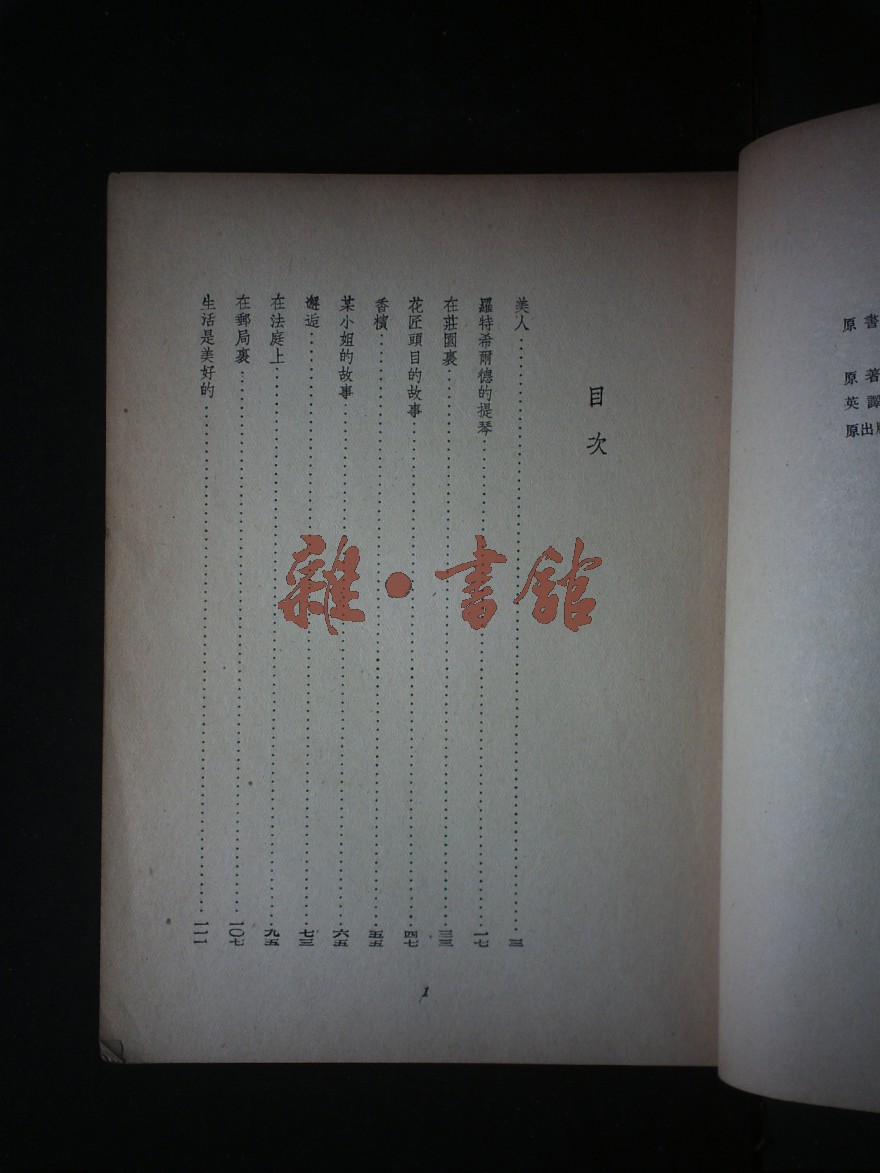 原書
原著
英譯
原出
目次
美人……三
羅特希爾德的提琴……一七
在莊園裏……三三
花匠頭目的故事……四七
香檳……五五
某小姐的故事……六五
邂逅……七三
在法庭上……九五
在郵局裏……一〇七
生活是美好的……一一一
1
雜·書館